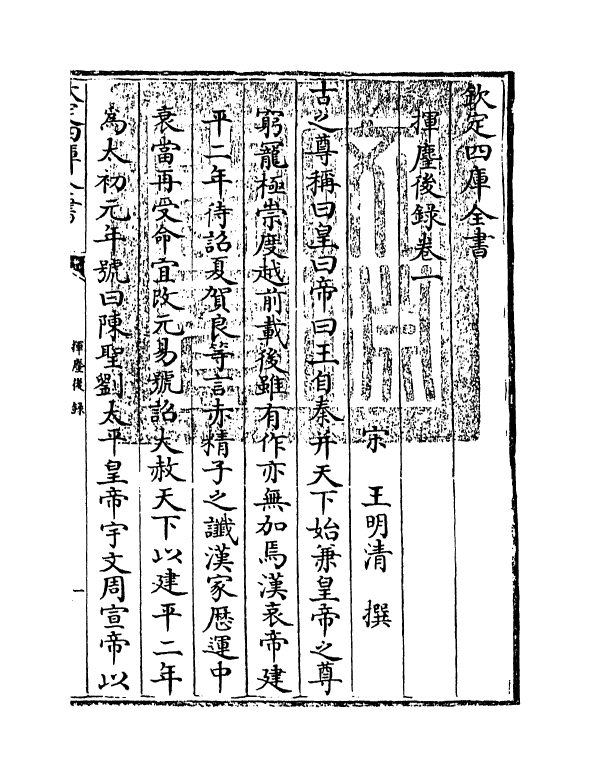 欽定四庫全書
揮麈後錄卷一
宋 王明清 撰
古之尊稱曰皇曰帝曰王自秦并天下始兼皇帝之尊
窮寵極崇度越前載後雖有作亦無加焉漢哀帝建
平二年待詔夏賀良等言赤精子之讖漢家厯運中
衰當再受命宜改元易號詔大赦天下以建平二年
為太初元年號曰陳聖劉太平皇帝宇文周宣帝以
欽定四庫全書
揮麈後錄
一